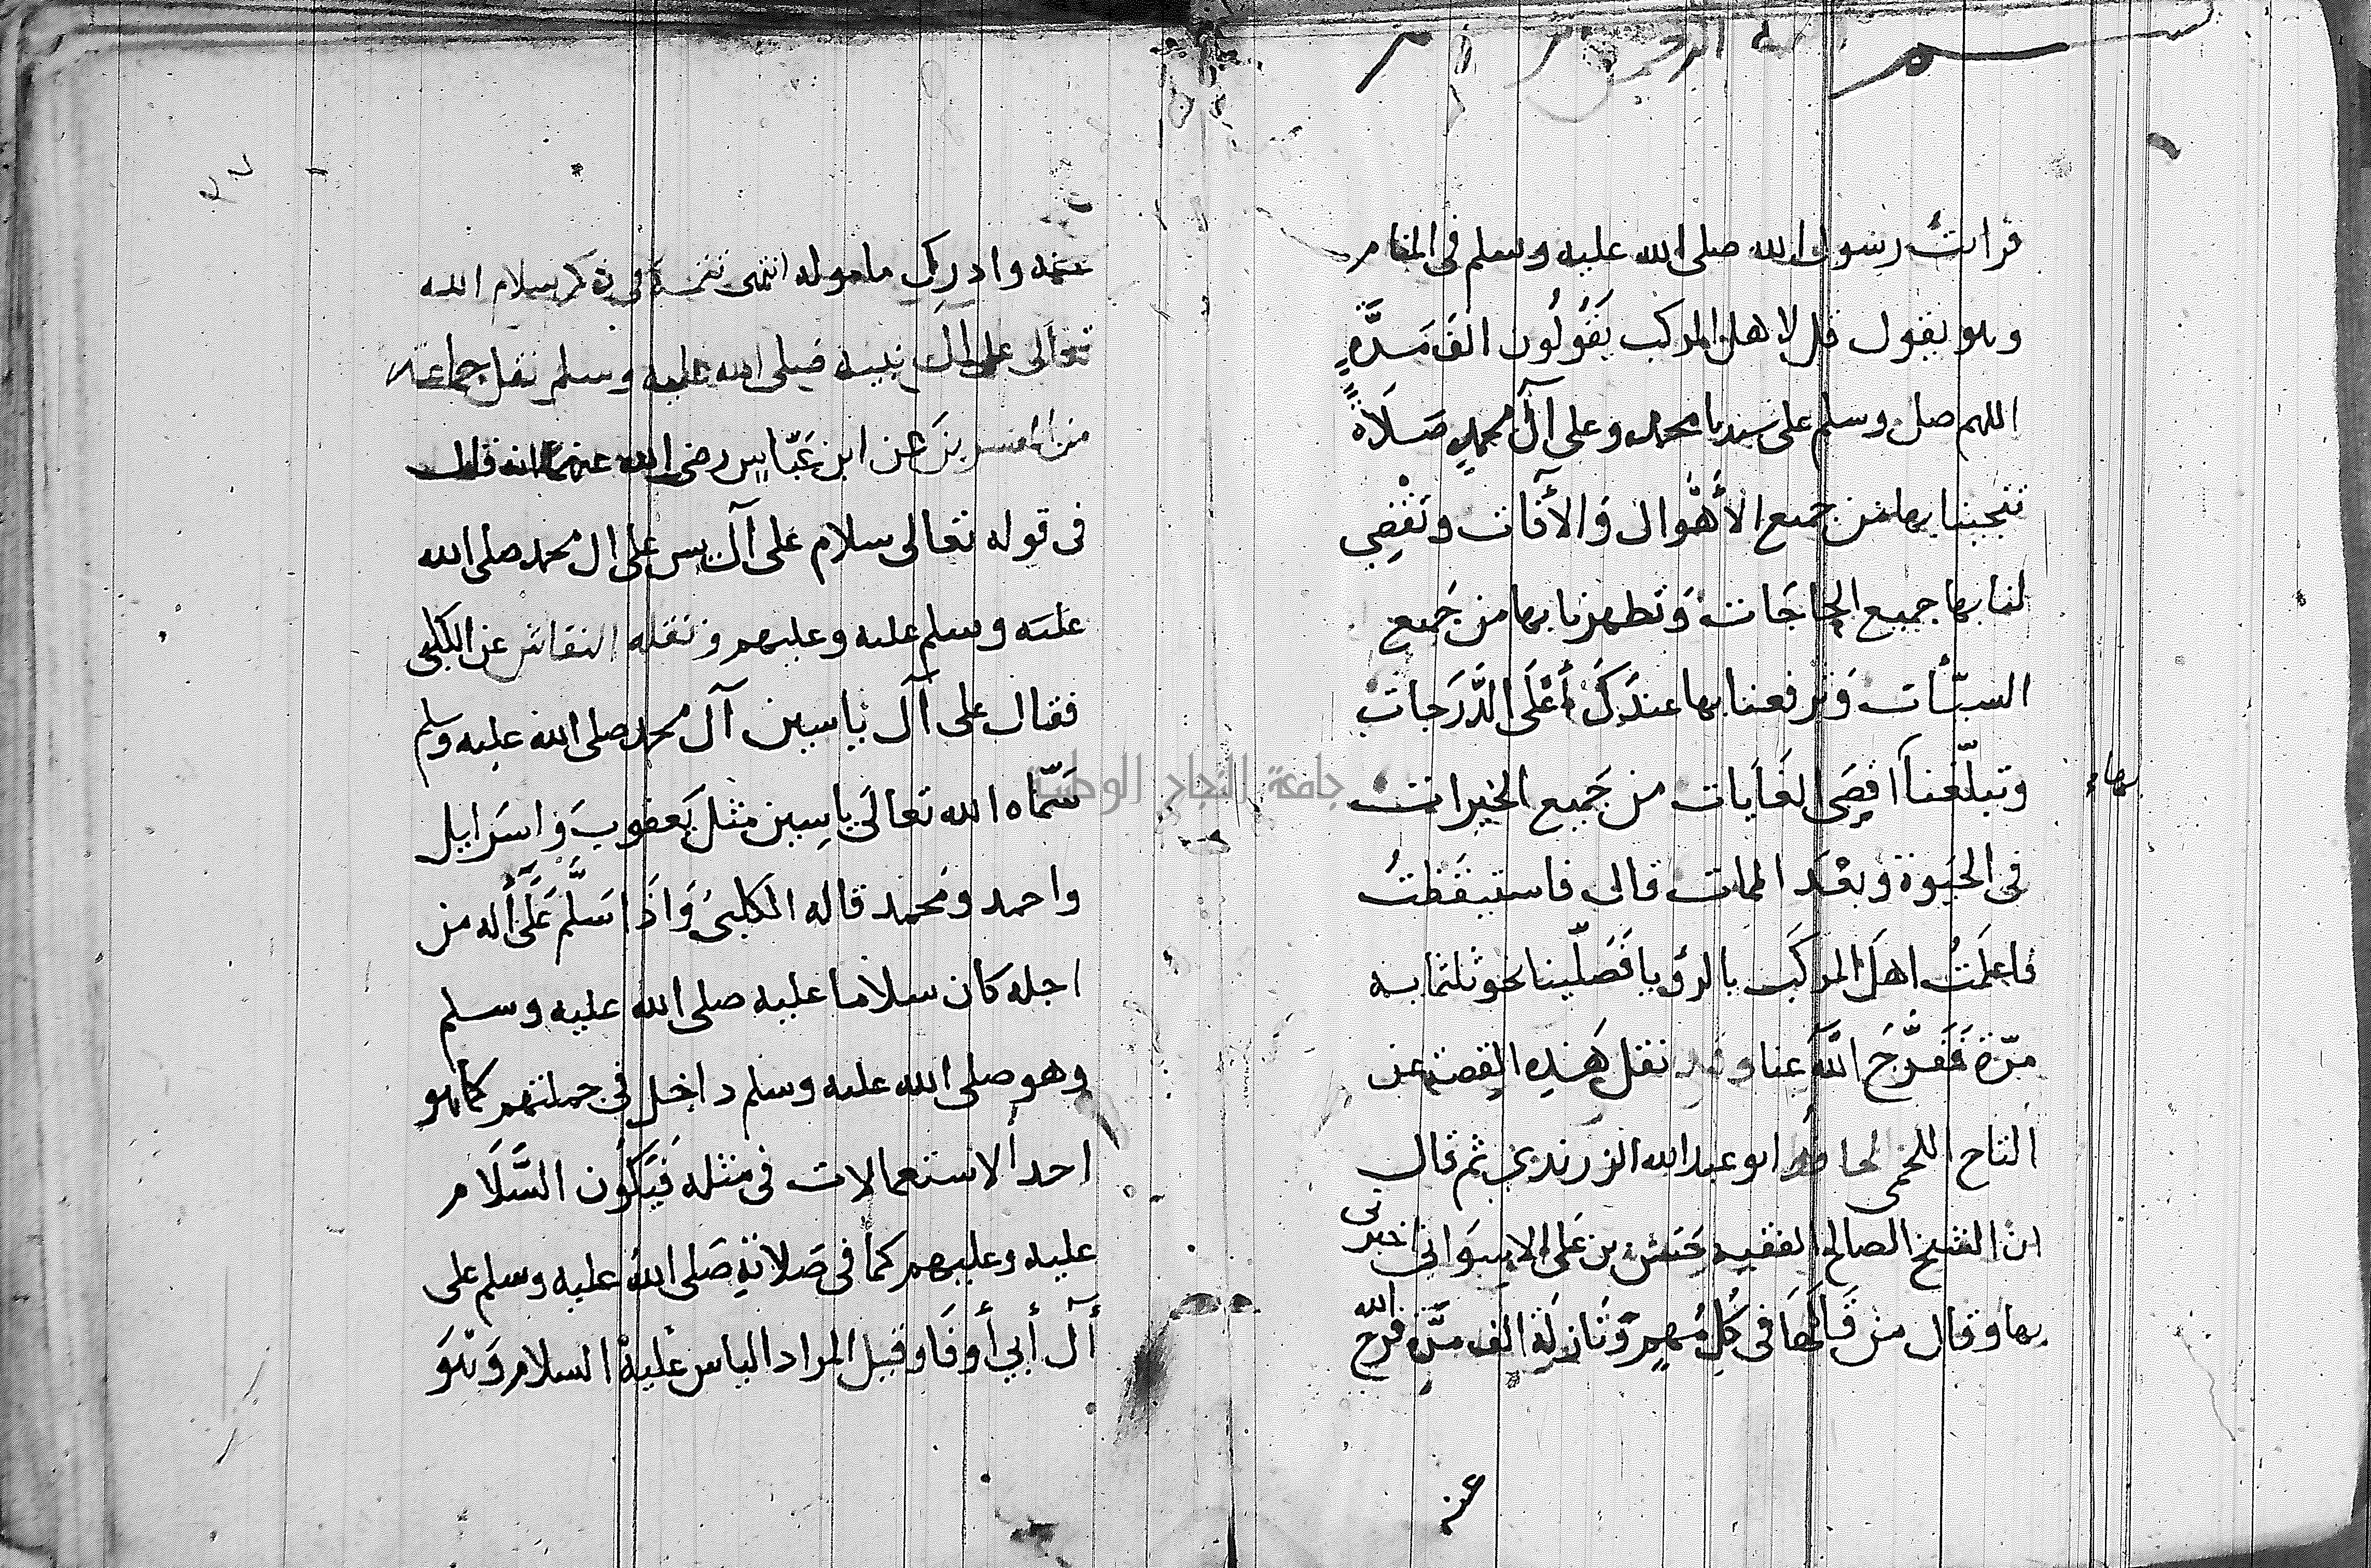 بسم الله الرحمن
فرايت رسول الله صلى الله عليه وسلم فى المنام
وهو يقول قل لاهل المركب يَقُولُون الفَ مَرَّةٍ
اللهم صل وسلم على سيدنا محمد وعلى آل محمدٍ صَلَاةً
تنجينا بها من جميع الأَهْوال وَالأَفات وتَقْضِي
لنا بها جميع الحاجَات وَتطهرنا بها من جَميع
السيّأت وَترفعنا بها عندَكَ أَعْلَى الدَّرَجات
وتبلّغنا اقصَى الغَايات من جَميع الخيرات
بها
فى الحَيوة وَبعْدَ الممات قال فاستيقَظتُ
فاعلمَتُ اهلَ المركَب بالرؤيا فَصَلّينا نحو ثلثمايه
مرّة فَفَرَّجَ اللَّه عنا وقد نقل هَذِه القصة عن
التاج اللخمى الحافظ ابو عبد الله الزرندي ثم قال
ان الشيخ الصالح الفقيه حَسَن بن عَلى الاسوَانى اخبرنى
بها وقال من قَالَهَا فى كُلِّ مُهِمٍّ وَنَازِلَة الف مَرَّة فرّج الله
عن
عنه وادرك مامولَه انتهى فى ذكر سلام الله
تعَالى على آل نبيه صلى الله عليه وسلم نقل جماعة
من المفسرينَ عَن ابن عَبّاسٍ رضى الله عنهما انه قال
فى قوله تعَالى سلام على آل يس على ال محمد صلى الله
عليه وسلم عليه وعليهم وَنقله النقاش عن الكلبى
فقال على آل ياسين آل محمد صلى الله عليه وسلم
سَمّاه الله تعالَى ياسِين مثل يَعقوبَ وَاسَراييل
واحمد وَمحمد قاله الكلبىُ وَاذَا سَلَّمَ عَلَى أله من
اجله كان سلاما عليه صلى الله عليه وسلم
وهو صلى الله عليه وسلم داخل فى جملتهم كما هو
احد الاستعمالات فى مثله فَيَكُون السَّلَام
عليه وعليهم كمَا فى صَلاته صَلى اللهُ عليه وسلم على
آل أبي أوفَا وقيل المراد الياس عَليهْ السلام وَهوَ
جامعة النجاح الوطنية